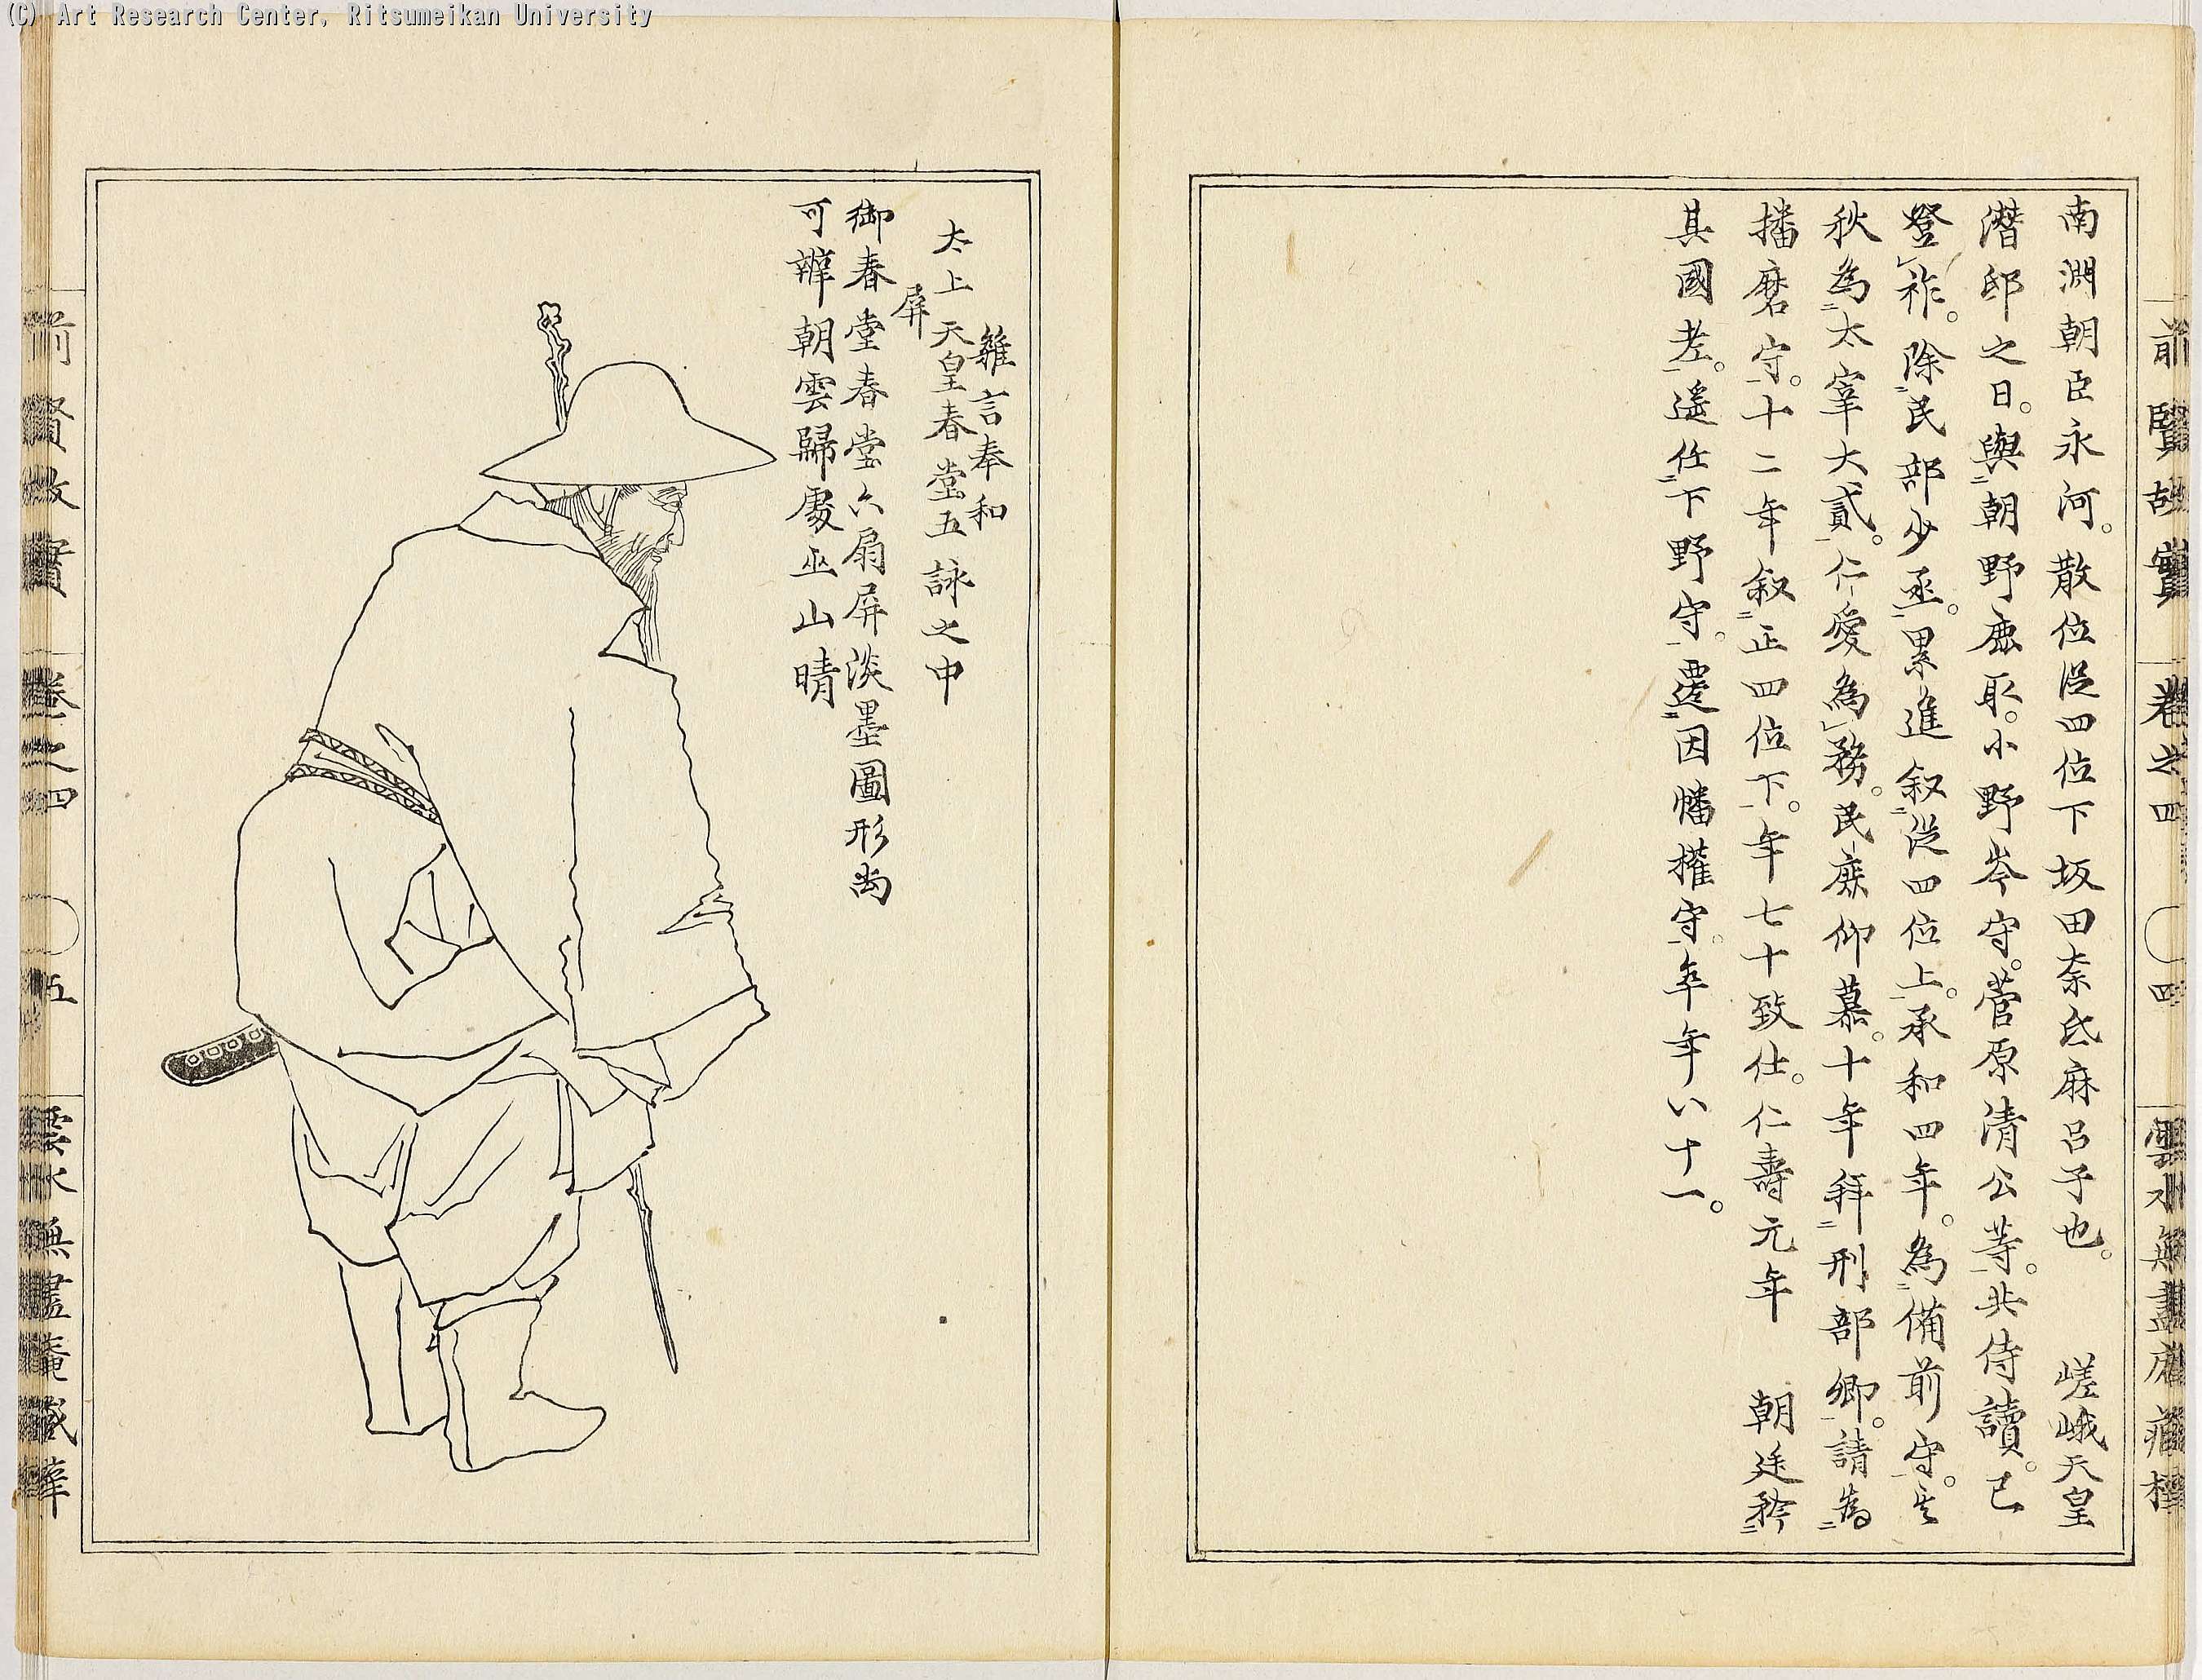 (C) Art Research Center, Ritsumeikan University
前賢故實 卷之四 〇四 雲水無盡庵藏梓
南淵朝臣永河。散位從四位下坂田奈氐麻呂子也。 嵯峨天皇
潛邸之日。與朝野鹿取。小野岑守。菅原清公等。共侍讀。已
登祚。除民部少丞。累進叙從四位上。承和四年。為備前守。其
秋為太宰大貳。仁愛為務。民庶仰慕。十年拜刑部卿。請為
播磨守。十二年叙正四位下。年七十致仕。仁壽元年 朝廷矜
其國老。遙任下野守。遷因幡權守。卒年八十一。
雜言奉和
太上天皇春堂五詠之中
屏
御春堂春堂六扇屏淡墨圖形尚
可辨朝雲歸處巫山晴
前賢故實 卷之四 〇五 雲水無盡庵藏梓